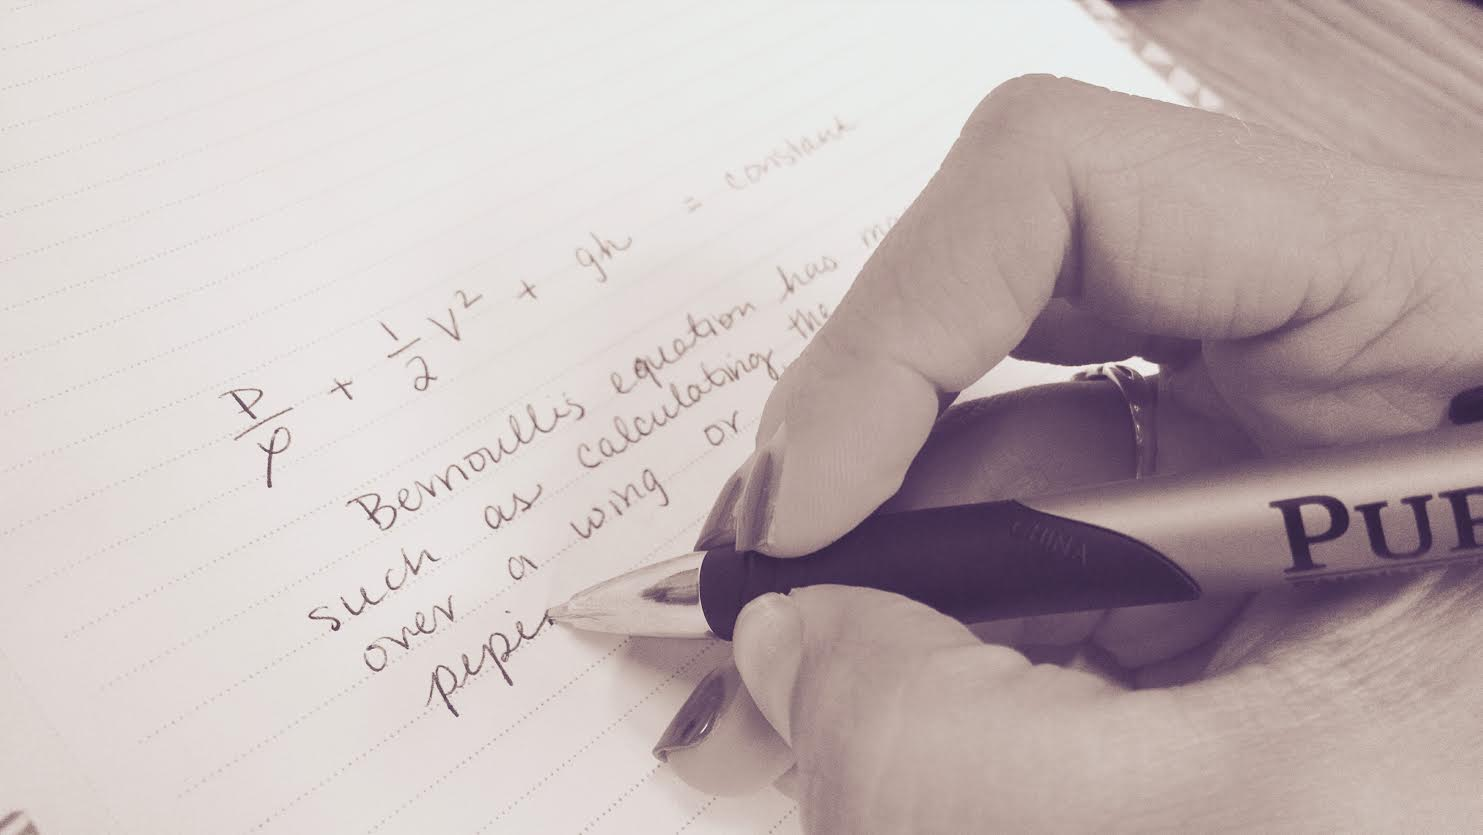 P/ρ + 1/2 V² + gh = constant
Bernoullis equation has
such as calculating the
over a wing or
pepi
CHINA
PUR